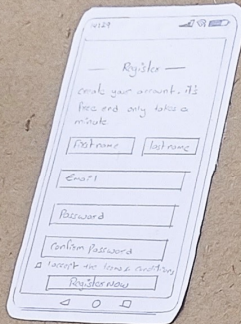 14:29
Register
create your account. it's
free and only takes a
minute
First name last name
Email
Password
Confirm Password
I accept the terms & conditions
Register Now